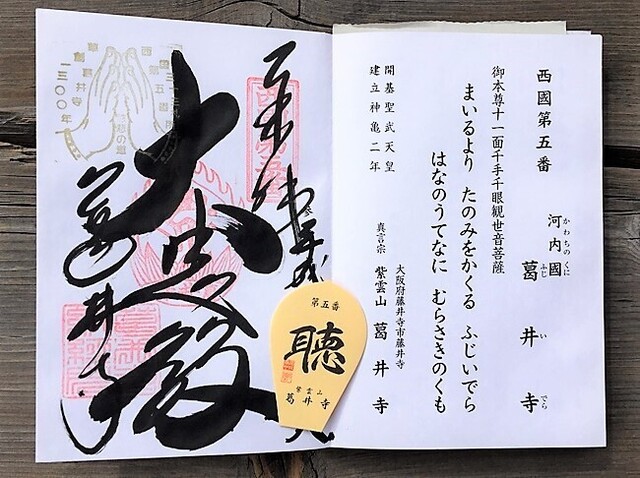 西國第五番
河内國 葛井寺
かわちのくに ふじ い でら
御本尊十一面千手千眼観世音菩薩
まいるより たのみをかくる ふじいでら
はなのうてなに むらさきのくも
開基聖武天皇
建立神亀二年
大阪府藤井寺市藤井寺
真言宗 紫雲山 葛井寺
第五番
聴
紫雲山
葛井寺
奉拝
大悲殿
葛井寺
西国第五番
葛井寺
一三〇〇年